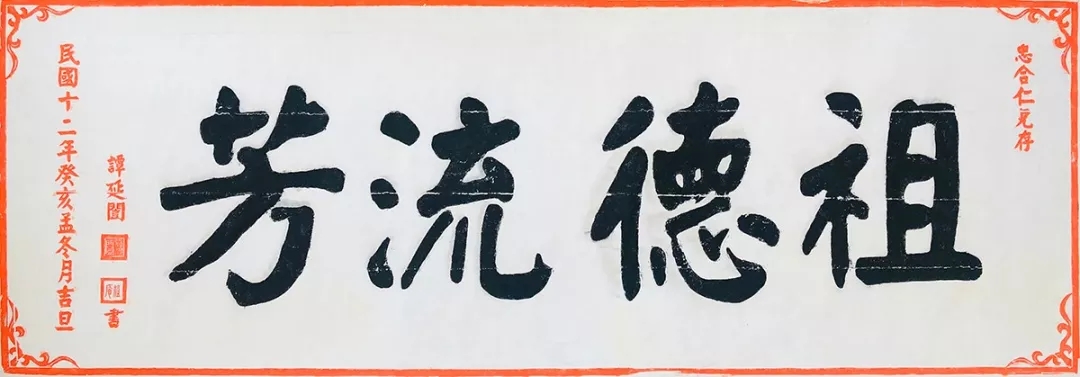 忠合仁兄存
祖德流芳
譚延闓 書
民國十二年癸亥孟冬月吉旦